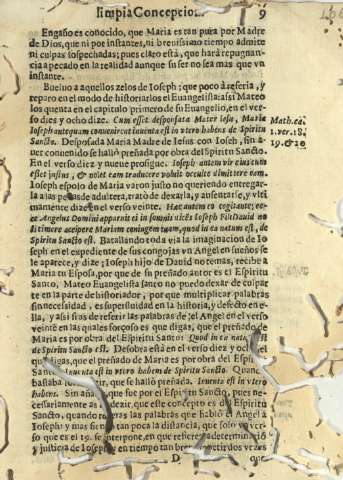 limpia Concepcion. 9
Engaño es conocido, que Maria es tan pura por Madre
de Dios, que ni por instantes, ni breuissimo tiempo admite
ni culpas sospechadas; pues claro està, que harà repugnan-
cia pecado en la realidad aunque su ser no sea mas que vn
instante.
Bueluo a aquellos zelos de Ioseph; que poco à referia, y
reparo en el modo de historiarlos el Euangelista: assi Mateo
los quenta en el capitulo primero de su Euangelio, en el ver-
so dies y ocho dize. Cum esset desponsata Mater Iesu, Maria
Ioseph antequam convenirent inuenta est in vtero habens de Spiritu
Sancto. Desposada Maria Madre de Iesus con Ioseph, sin a-
uer conuenido se hallò preñada por obra del Spiritu Sancto.
En el verso diez y nueue prosigue. Ioseph autem vir eius cum
esset iustus, & nolet eam traducere voluit occulte dimittere eam.
Ioseph esposo de Maria varon justo no queriendo entregar-
la a las penas de adultera, tratò de dexarla, y ausentarse, y vl-
timamente dize en el verso veinte. Hæc autem eo cogitante; ec-
ce Angelus Domini apparuit ei in somnis dicẽs Ioseph Fili Dauid no-
li timere accipere Mariam coniugem tuam, quod in ea natum est, de
Spiritu Sancto est. Batallando toda via la imaginacion de Io
seph en el expediente de sus congojas vn Angel en sueños se
le aparece, y dize Ioseph hijo de Dauid no temas, recibe a
Maria tu Esposa, por que de su preñado autor es el Espiritu
Santo. Mateo Euangelista santo no puedo dexar de culpar
te en la parte de historiador, por que multiplicar palabras
sin necessidad, es superfluidad en la historia, y defecto en e-
lla, y assi si as de referir las palabras del Angel en el verso
veinte en las quales forçoso es que digas, que el preñado de
Maria es por obra del Espiritu Santo: Quod in ea natum
est de Spiritu Sancto est. De sobra està en el verso diez y ocho el
que digas, que el preñado de Maria es por obra del Espiritu
Sancto. Inuenta est in vtero habens de Spiritu Sancto.
bastaba dezir, que se hallò preñada. Inuenta est in vtero
habens. Sin añadir que fue por el Espiritu Sancto, pues ne-
cesariamente as de dezir, que esse concepto es del Espiritu
Sancto, quando refieras las palabras que habló el Angel à
Ioseph; y mas siendo tan poca la distancia, que solo vn ver-
so que es el 19. se interpone, en que refieres la determinacion
y justicia de Ioseph, y en tiempo tan breue repetir dos vezes
D que
Math. ca.
1. ver. 18.
19. & 20